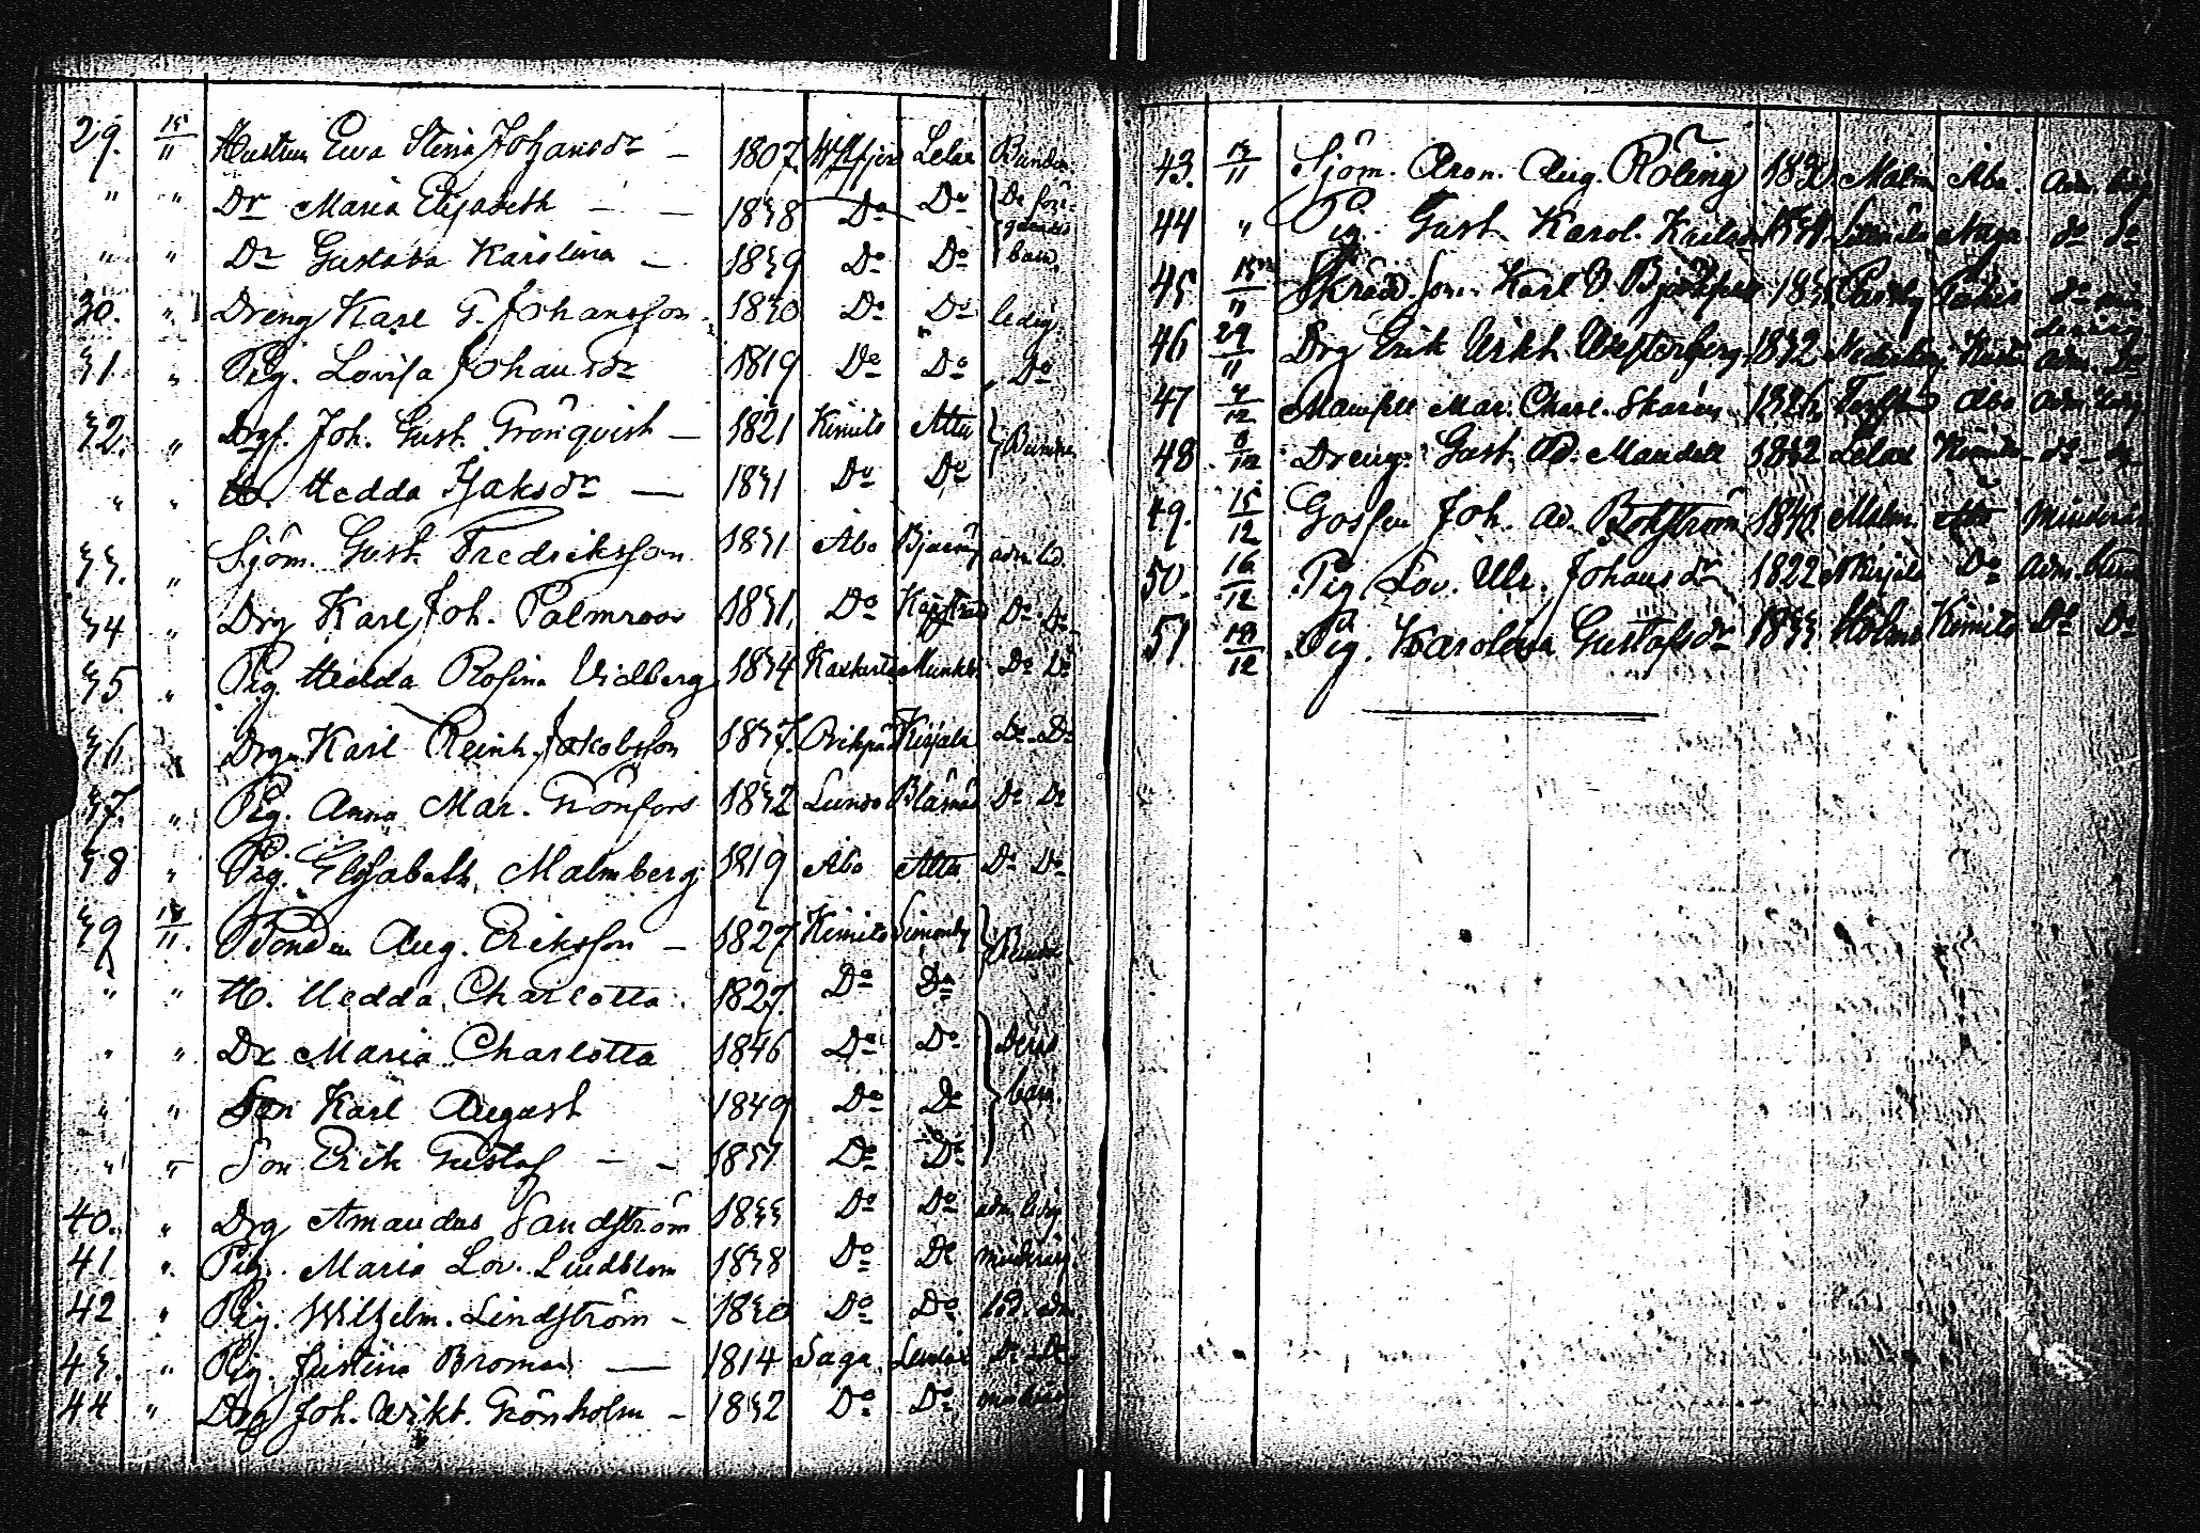 29. 15/11 Hustrun Ewa Stina Johansdr — 1807 Lelax Bunden
" " Dr Maria Elisabeth — — 1838 Do Do De före-
" " Dr Gustava Karolina — 1839 Do Do barn
30. " Dreng Karl G. Johansson 1830 Do Do ledig
31. " Pig. Lovisa Johansdr 1819 Do Do Do
32. " Drgf. Joh. Gust. Grönqvist — 1821 Kimito Attu Bundne
" " H. Hedda Isaksdr — 1831 Do Do
33. " Sjöm. Gust. Fredriksson 1831 Åbo adm. led.
34 " Drg Karl Joh. Palmroos 1831 Do Do Do
35 " Pig. Hedda Rosina Vidberg 1834 Do Do
36 " Drg. Karl Reinh. Jakobsson 1837. Kirjala Do Do
37. " Pig. Anna Mar. Grönfors 1832 Lundo Blåsnäs Do Do
38 " Pig. Elisabeth Malmberg 1819 Åbo Attu Do Do
39 18/11. Bonden Aug. Eriksson — 1827 Kimito Simonby Bundne
" " H. Hedda Charlotta 1827. Do Do
" " Dr Maria Charlotta 1846 Do Do Deras
" " Son Karl August 1849 Do Do barn
" " Son Erik Gustaf — — 1851 Do Do
40. " Drg Amandus Sandström 1833 Do Do adm. ledig
41 " Pig. Maria Lov. Lindblom 1838 Do Do minderårig
42 " Pig. Wilhelm. Lindström — 1830 Do Do led. adm
43. " Pig. Justina Broman — 1814 Sagu Lemlax Do Do
44 " Drg Joh. Wikt. Grönholm — 1832 Do Do
43. /11 Sjöm. Aron. Aug. Röling 1830 Malm Åbo. adm. ledig
44 " Pig. Gust. Karol. Karlsdr Nagu do do
45 /11 Skrädd. son. Karl
46 29/11 Drg Erik Wikt. Westerberg 1832 adm. Do
47 4/12 Mamsell Mar. Charl. Skarin 1826 Åbo adm. ledig
48 8/12 Dreng. Gust. Ad. Mandell 1832 Lelax Kimito do do
49. 15/12 Gossen Joh. Ad. Bokström 1840 Malm. Åbo minderår.
50. 16/12 Pig. Lov. Ulr. Johansdr 1822 Kirjala Do
51. 18/12 Pig. Karolina Gustafsdr 1833 Holma Kimito Do Do